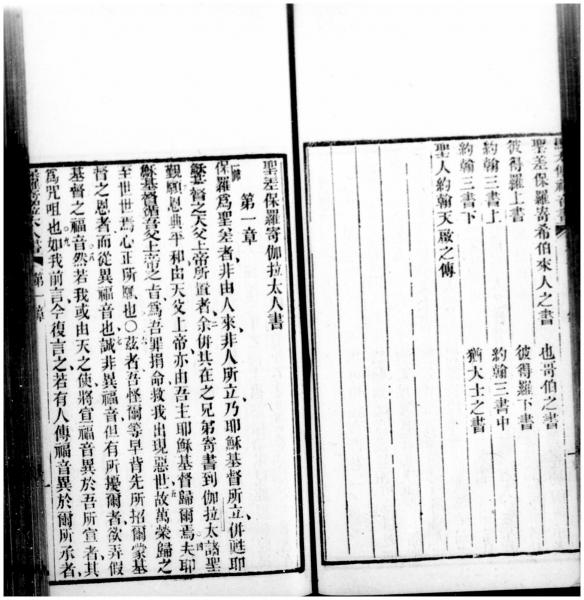 聖差保羅寄希伯來人之書
也哥伯之書
彼得羅上書
彼得羅下書
約翰三書上
約翰三書中
約翰三書下
猶大士之書
聖人約翰天啟之傳
聖差保羅寄伽拉太人書
第一章
保羅為聖差者、非由人來、非人所立、乃耶穌基督所立、併甦耶
穌基督之天父上帝所置者、余併其在之兄弟寄書到伽拉太諸聖
覲願恩典平和、由天父上帝、亦由吾主耶穌基督歸爾焉、夫耶
穌基督遵吾父上帝之旨、為吾罪捐命、救我出現惡世、故萬榮歸之
至世世焉、心正所愿也〇茲者吾怪爾等早背先所招爾蒙基
督之恩者、而從異福音也、誠非異福音、但有所擾爾者、欲弄假
基督之福音、然若我或由天之使、將宣福音異於吾所宣者、其
為咒咀也、如我前言、今復言之、若有人傳福音異於爾所承者、